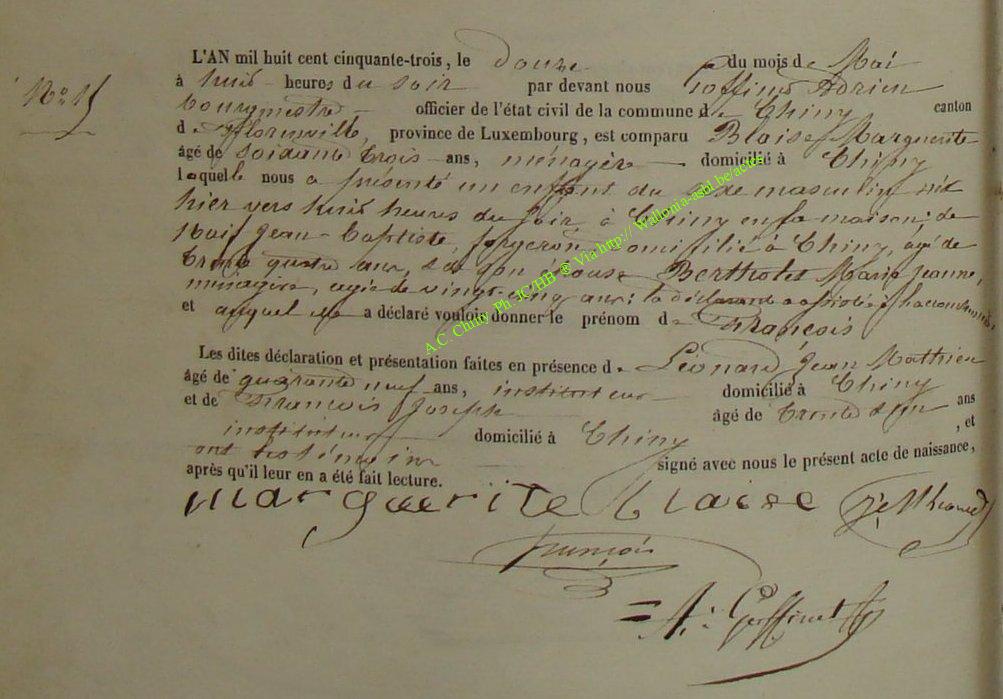 N° 15
L'AN mil huit cent cinquante-trois, le douze du mois de Mai
à huit heures du soir par devant nous Goffinet Adrien
bourgmestre officier de l'état civil de la commune de Chiny canton
de Florenville, province de Luxembourg, est comparu Blaise Marguerite
âgé de soixante trois ans, ménagère domicilié à Chiny
laquelle nous a présenté un enfant du sexe masculin né
hier vers huit heures du soir, à Chiny en sa maison; de
Jean-Baptiste, forgeron domicilié à Chiny, âgé de
trente quatre ans, & de son épouse Bertholet Marie Jeanne,
ménagère, agée de vingt-cinq ans; la déclarant a assisté à l'accouchement
et auquel a déclaré vouloir donner le prénom de François
Les dites déclaration et présentation faites en présence de Léonard Jean Mathieu
âgé de quarante neuf ans, instituteur domicilié à Chiny
et de François Joseph âgé de trente ans
instituteur domicilié à Chiny, et
ont les témoins signé avec nous le présent acte de naissance,
après qu'il leur en a été fait lecture.
Marguerite Blaise
françois
A. Goffinet
A.C. Chiny Ph JC/HB ® Via http:// Wallonia-asbl.be/actes